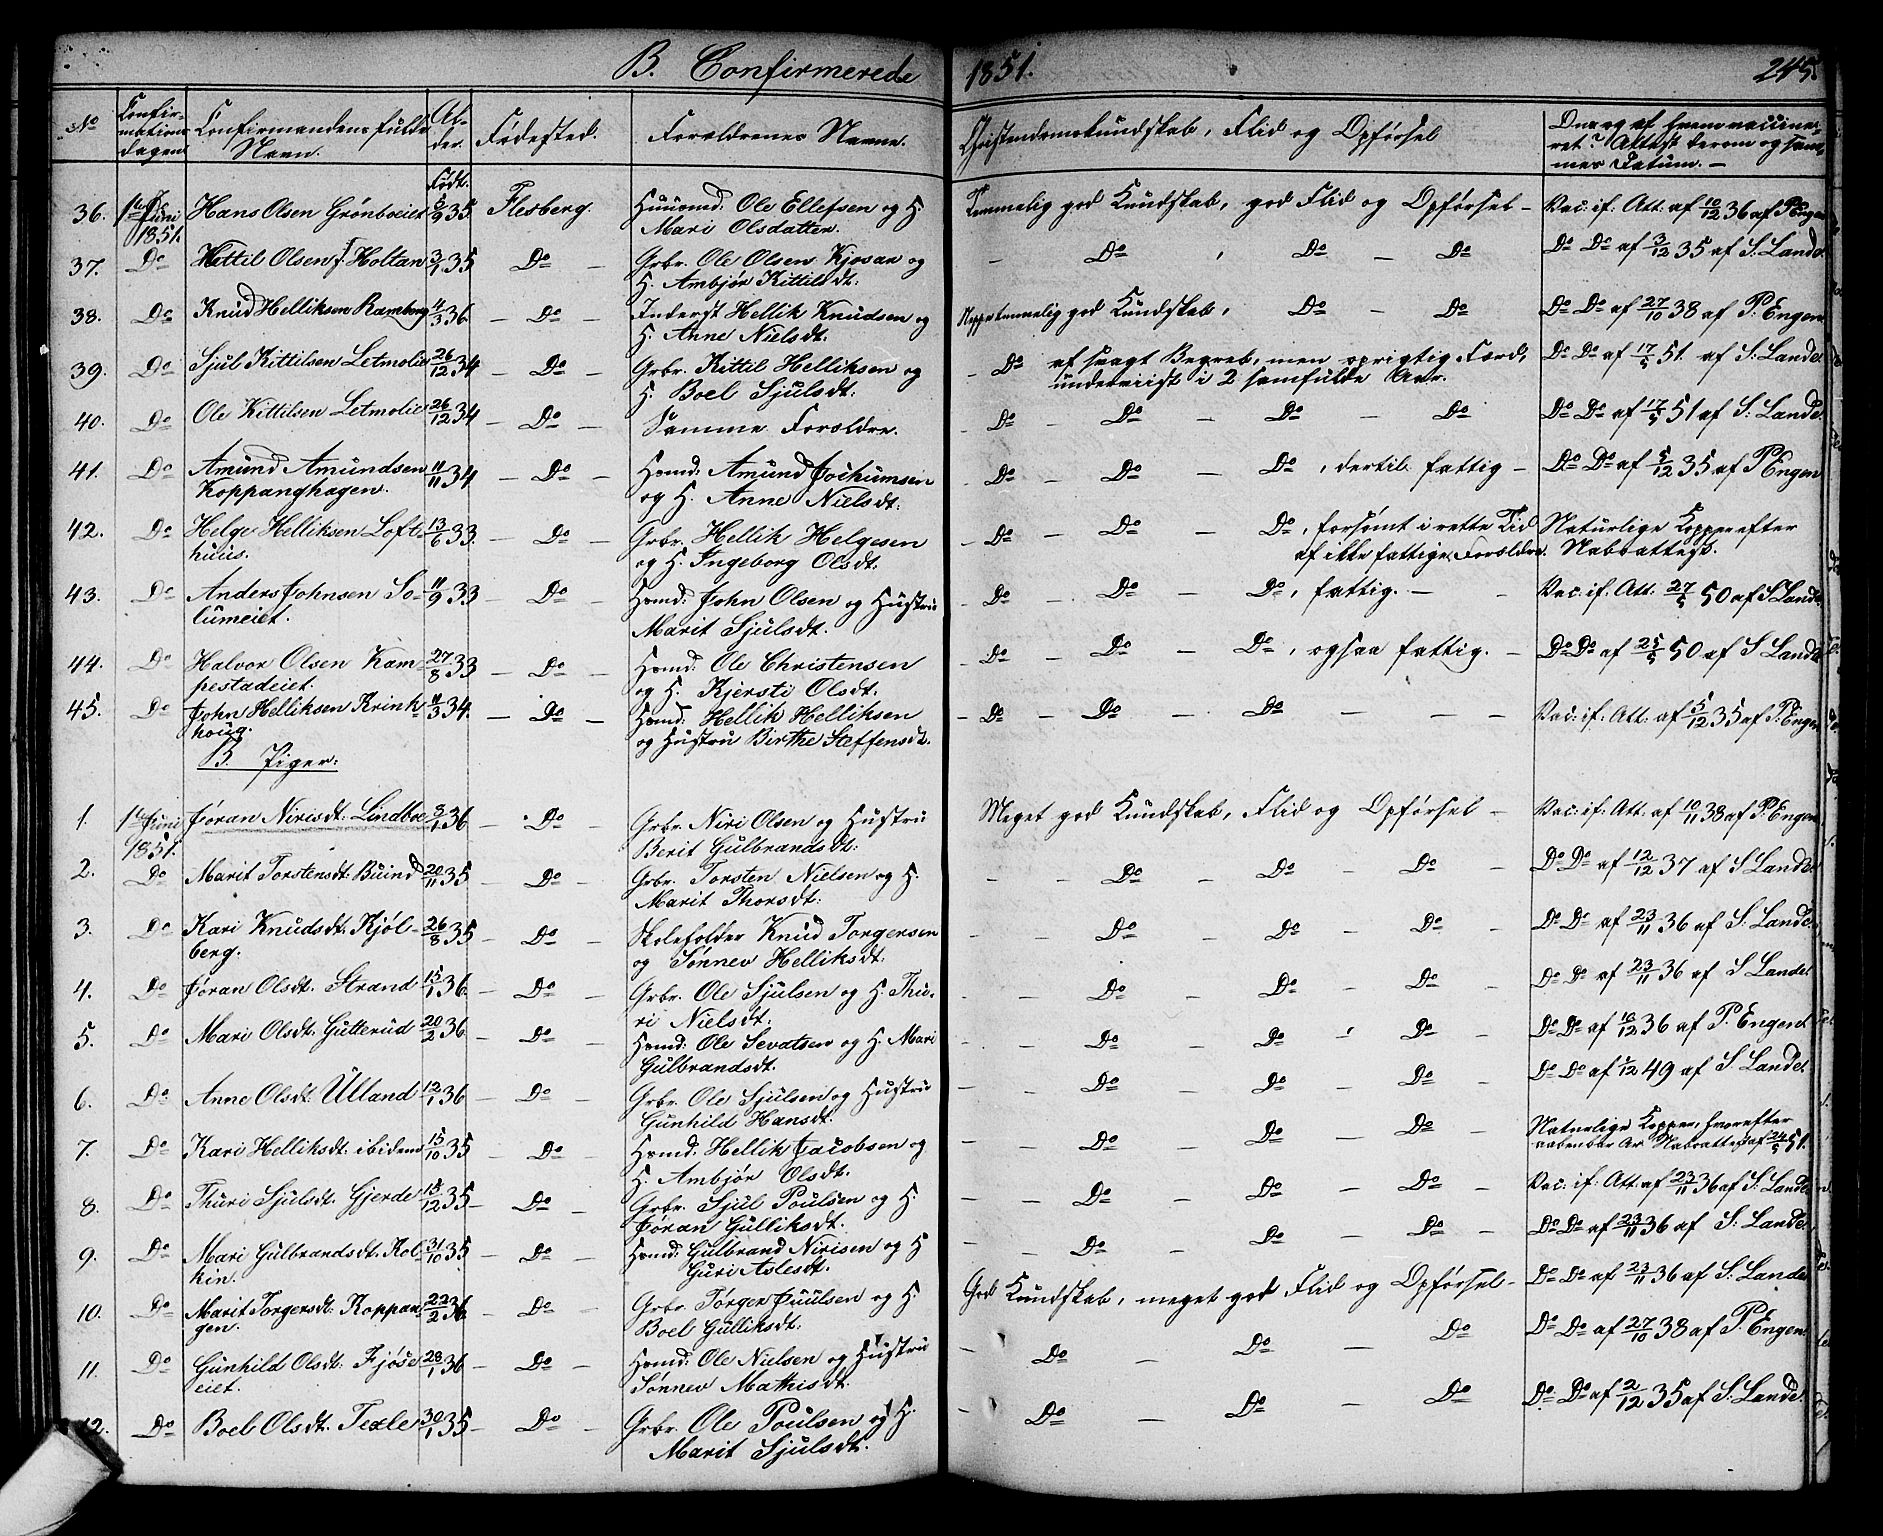 B. Confirmerede 1851. 245.
No Confirmations dagen Confirmandens fulde Navn. Alder. Fødested. Forældrenes Navne. Christendomskundskab, Flid og Opførsel Om og af hvem vaccineret? Attest derom og sammes Datum. —
Født.
36. 1ste Juni 1851. Hans Olsen Grönboeiet 5/9 35. Flesberg. Huusmd: Ole Ellefsen og H. Temmelig god Kundskab, god Flid og Opförsel — Vac: if. Att: af 10/12 36 af P. Engen
Mari Olsdatter.
37. Do Kittil Olsen f. Holtan 3/1 35 — Do — Grbr. Ole Olsen Kjosar og — Do , Do — Do Do Do af 3/12 35 af S. Landet
H. Ambjör Kittilsdt:
38. Do Knud Helliksen Ramberg 4/3 36. — Do — Inderst Hellik Knudsen og Neppe temmelig god Kundskab, Do — Do Do Do af 27/10 38 af P. Engen
H. Anne Nielsdt.
39. Do Sjul Kittilsen Letmolie 26/12 34 — Do — Grbr. Kittil Helliksen og — Do af svagt Begreb, men oprigtig Færd, Do Do af 17/5 51. af S. Landet
H. Boel Sjulsdt: underviist i 2 samfulde Aar.
40. Do Ole Kittilsen Letmolie 26/12 34 — Do — Samme Forældre. — Do — Do — Do — Do Do Do af 17/5 51 af S. Landet
41. Do Amund Amundsen 11/11 34 — Do — Hsmd: Amund Jochumsen — Do — Do — Do, dertil fattig — Do Do af 5/12 35 af P Engen
Koppanghagen. og H. Anne Nielsdt:
42. Do Helge Helliksen Loft- 13/6 33. — Do — Grbr. Hellik Helgesen — Do — Do — Do, forsömt i rette Tid Naturlige Kopper efter
huus. og H. Ingeborg Olsdt. af ikke fattige Forældre. Naboattest.
43. Do Anders Johnsen So- 11/9 33 — Do — Hsmd: John Olsen og Hustru — Do — Do — Do, fattig. — — Vac: if. Att: 27/5 50 af S Landet
lumeiet. Marit Sjulsdt.
44. Do Halvor Olsen Kam- 27/8 33 — Do — Hsmd: Ole Christensen — Do — Do — Do, ogsaa fattig. — Do Do af 25/5 50 af S Landet
pestadeiet. og H. Kjersti Olsdt.
45. Do John Helliksen Krink- 11/3 34. — Do — Hsmd: Hellik Helliksen — Do — Do — Do — — — Vac: if. Att: af 5/12 35 af P. Engen
houg. og Hustru Birthe Steffensdt.
B. Piger:
1. 1ste Juni 1851. Jöran Nirisdt: Lindboe 3/1 36 — Do — Grbr. Niri Olsen og Hustru Meget god Kundskab, Flid og Opförsel — Vac: if. Att: af 10/11 38 af P. Engen
Berit Gulbrandsdt:
2. Do Marit Torstensdt. Buind 20/11 35 — Do — Grbr. Torsten Nielsen og H. — — Do — Do — Do — Do Do af 12/12 37 af S Landet
Marit Thorsdt:
3. Do Kari Knudsdt. Kjöl- 26/8 35 — Do — Skoleholder Knud Torgersen — — Do — Do — Do — Do Do af 23/11 36 af S. Landet
berg. og Sönnev Helliksdt:
4. Do Jöran Olsdt. Strand 15/1 36. — Do — Grbr. Ole Sjulsen og H. Thu- — — Do — Do — Do — Do Do af 23/11 36 af S Landet
ri Nielsdt:
5. Do Mari Olsdt. Gutterud 20/2 36. — Do — Hsmd: Ole Sevatsen og H. Mari — — Do — Do , Do — Do Do af 10/12 36 af P. Engen
Gulbrandsdt.
6. Do Anne Olsdt Ulland 12/1 36 — Do — Grbr. Ole Sjulsen og Hustru — — Do — Do — Do — Do Do af 1/12 49 af S Landet
Gunhild Hansdt.
7. Do Kari Helliksdt. ibidem 15/10 35 — Do — Hsmd. Hellik Jacobsen og — — Do — Do — Do — Naturlige Kopper, hvorefter
H. Ambjör Olsdt. aabenbar Ar Naboattest af 24/5 51.
8. Do Thuri Sjulsdt. Gjerde 15/12 35 — Do — Grbr. Sjul Poulsen og H. — — Do — Do — Do — Vac: if. Att: af 23/11 36 af S. Landet
Jöran Gulliksdt.
9. Do Mari Gulbrandsdt. Kol- 31/10 35 — Do — Hsmd: Gulbrand Nirisen og H — — Do — Do — Do — Do Do af 23/11 36 af S. Landet
kin. Guri Aslesdt.
10. Do Marit Torgersdt. Koppan- 22/2 36. — Do — Grbr. Torger Juulsen og H. God Kundskab, meget god Flid og Opförsel — Do Do af 23/11 36 af S. Landet
gen. Boel Gulliksdt.
11. Do Gunhild Olsdt. Fjöse- 28/1 36 — Do — Hsmd: Ole Nielsen og Hustru — Do — Do — Do Do Do af 27/10 38 af P. Engen
eiet. Sönnev Mathisdt.
12. Do Boel Olsdt. Texle 30/1 35 — Do — Grbr. Ole Poulsen og H. — Do — Do — Do Do Do af 2/12 35 af S. Landet.
Marit Sjulsdt.